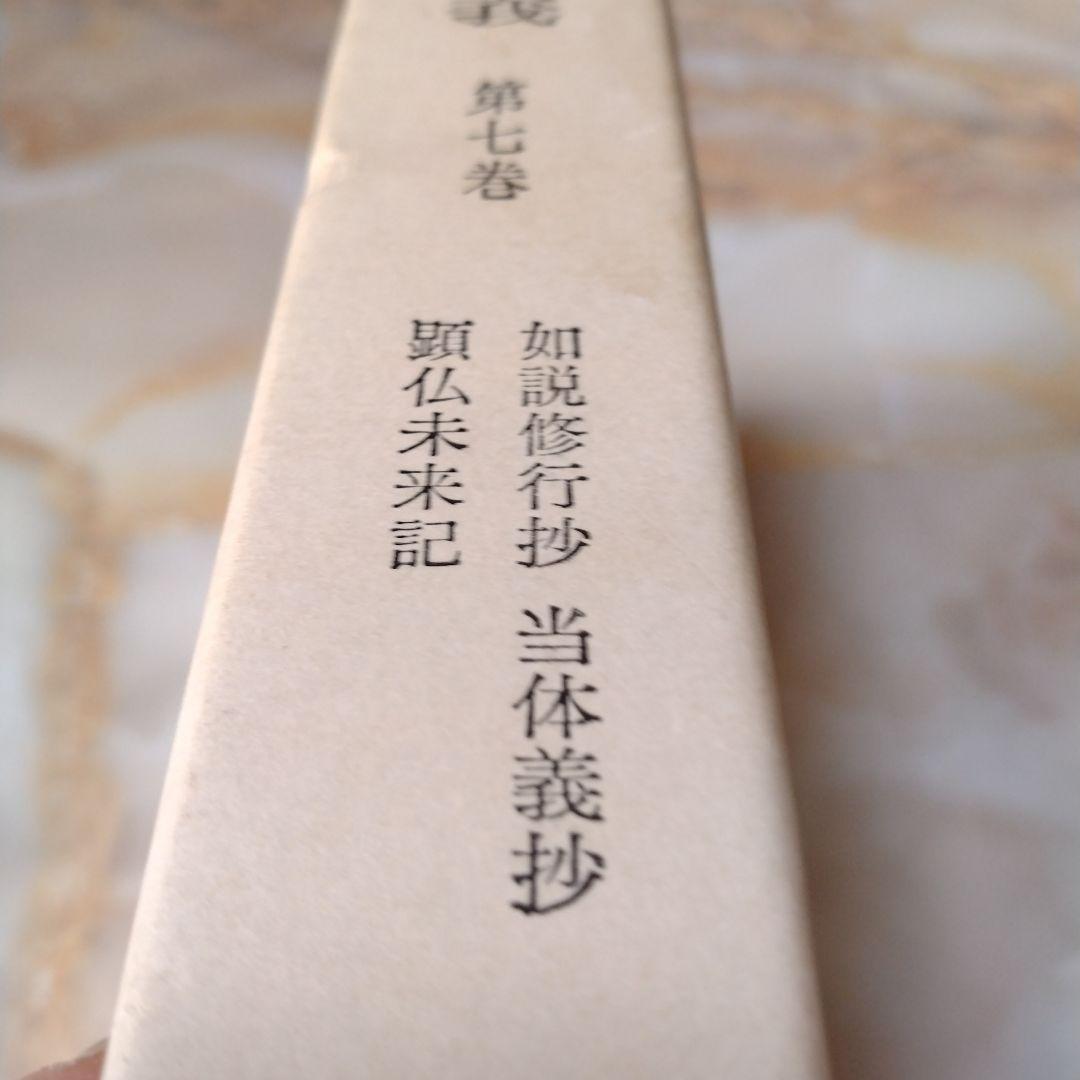 義 第七巻
如説修行抄 当体義抄
顕仏未来記